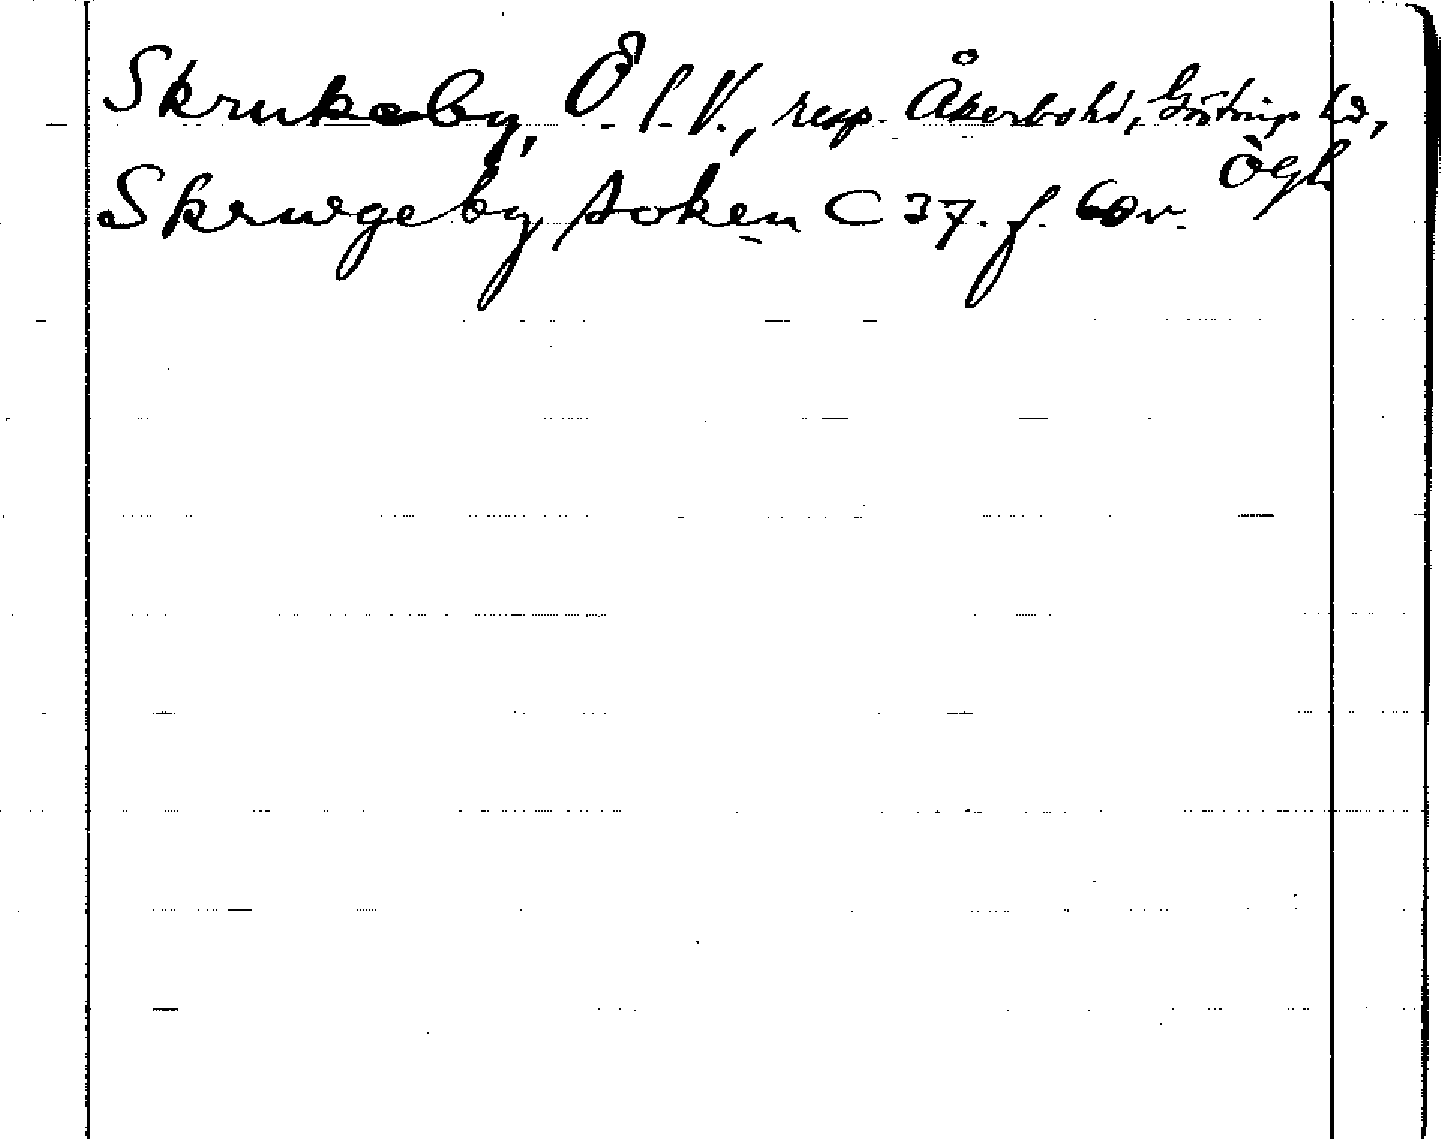 Skrukeby, Ö. l. V., resp. Åkerbohd, Göstrings hd,
Ögl
Skrwgeby soken C 37. f. 60v.